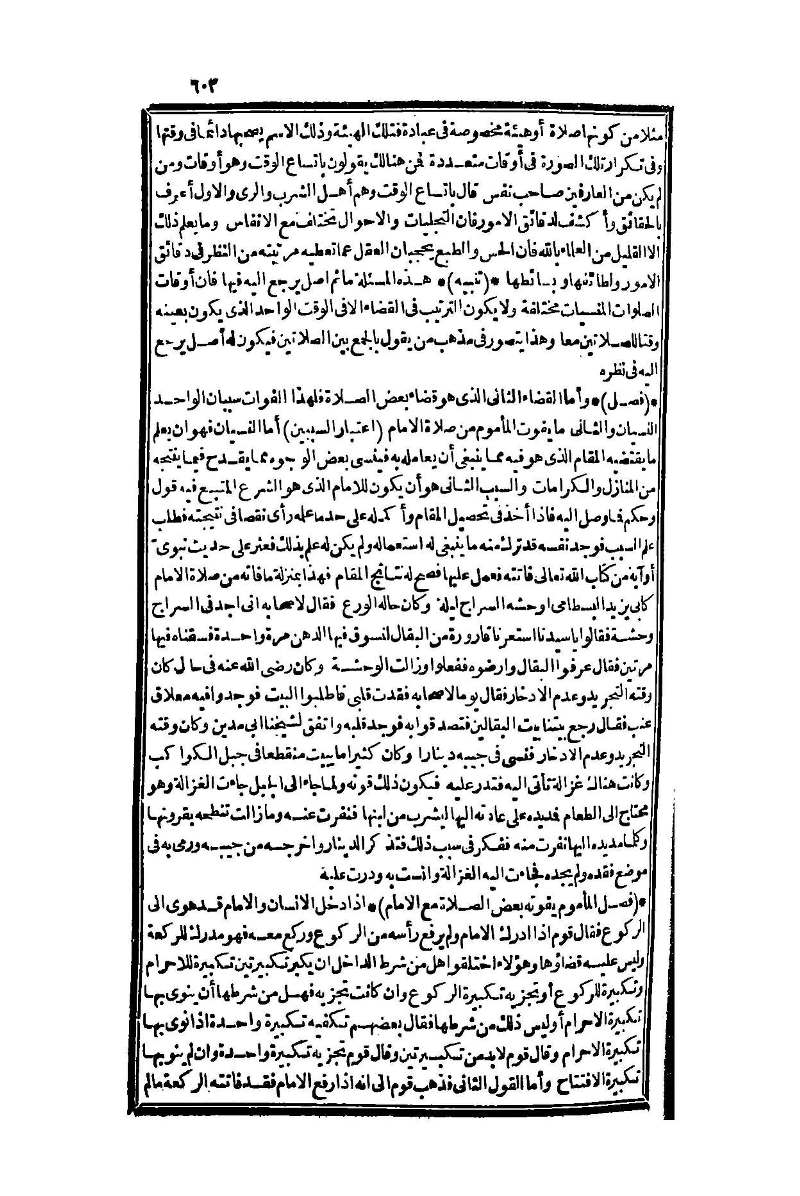 ٦٠٣
مثلا من كونها صلاة أو هيئة مخصوصة في عبادة فتلك الهيئة وذلك الاسم يصحبها دائما في وقتها
وفي تكرار تلك الصورة في أوقات متعددة فمن هنالك يقولون باتساع الوقت وهو أوقات ومن
لم يكن من العارفين صاحب نفس قال باتساع الوقت وهم أهل الشرب والري والاول أعرف
بالحقائق وأكشف لدقائق الامور فان التجليات والاحوال تختلف مع الانفاس وما يعلم ذلك
الا القليل من العلماء بالله فان الحس والطبع يحجبان العقل عما تعطيه مرتبته من النظر في دقائق
الامور ولطائفها وبسائطها *(تنبيه)* هذه المسئلة ما ثم اصل يرجع اليه فيها فان أوقات
الصلوات المنسيات مختلفة ولا يكون الترتيب في القضاء الا في الوقت الواحد الذي يكون بعينه
وقتا للصلاتين معا وهذا يتصور في مذهب من يقول بالجمع بين الصلاتين فيكون له أصل يرجع
اليه في نظره
*(فصل)* وأما القضاء الثاني الذي هو قضاء بعض الصلاة فلهذا الفوات سببان الواحد
النسيان والثاني ما يفوت المأموم من صلاة الامام (اعتبار السببين) أما النسيان فهو ان يعلم
ما يقتضيه المقام الذي هو فيه مما ينبغي أن يعامله به فينسى بعض الوجوه مما يقدح فيما ينتجه
من المنازل والكرامات والسبب الثاني هو أن يكون للامام الذي هو الشرع المتبع فيه قول
وحكم فما وصل اليه فاذا أخذ في تحصيل المقام وأكمله على حد ما عمله رأى نقصا في نتيجته فطلب
علم السبب فوجد نفسه قد ترك منه ما ينبغي له استعماله ولم يكن له علم بذلك فعثر على حديث نبوي
أو آية من كتاب الله تعالى فاتته فعمل عليها فصح له نتائج المقام فهذا بمنزلة ما فاته من صلاة الامام
كابي يزيد البسطامي اوحشه السراج ليلة وكان حاله الورع فقال لاصحابه اني اجد في السراج
وحشة فقالوا يا سيدنا استعرنا قارورة من البقال لنسوق فيها الدهن مرة واحدة فسقناه فيها
مرتين فقال عرفوا البقال وارضوه ففعلوا وزالت الوحشة وكان رضي الله عنه في حال كان
وقته التجريد وعدم الادخار فقال يوما لاصحابه فقدت قلبي فاطلبوا البيت فوجدوا فيه معلاق
عنب فقال رجع بيتنا بيت البقالين فتصدقوا به فوجد قلبه واتفق لشيخنا ابي مدين وكان وقته
التجريد وعدم الادخار فنسي في جيبه دينارا وكان كثيرا ما يبيت منقطعا في جبل الكواكب
وكانت هناك غزالة تأتي اليه فتدر عليه فيكون ذلك قوته ولما جاء الى الجبل جاءت الغزالة وهو
محتاج الى الطعام فمد يده على عادته اليها ليشرب من لبنها فنفرت عنه وما زالت تنطحه بقرونها
وكلما مد يده اليها نفرت منه ففكر في سبب ذلك فتذكر الدينار واخرجه من جيبه ورمى به في
موضع فقده ولم يجده فجاءت اليه الغزالة وانست به ودرت عليه
*(فصل المأموم يفوته بعض الصلاة مع الامام)* اذا دخل الانسان والامام قد هوى الى
الركوع فقال قوم اذا ادرك الامام ولم يرفع رأسه من الركوع وركع معه فهو مدرك للركعة
وليس عليه قضاؤها وهؤلاء اختلفوا هل من شرط الداخل ان يكبر تكبيرتين تكبيرة للاحرام
وتكبيرة للركوع أو تجزيه تكبيرة الركوع وان كانت تجزيه فهل من شرطها أن ينوي بها
تكبيرة الاحرام أو ليس ذلك من شرطها فقال بعضهم تكفيه تكبيرة واحدة اذا نوى بها
تكبيرة الاحرام وقال قوم لا بد من تكبيرتين وقال قوم تجزيه تكبيرة واحدة وان لم ينو بها
تكبيرة الافتتاح وأما القول الثاني فذهب قوم الى انه اذا رفع الامام فقد فاتته الركعة ما لم